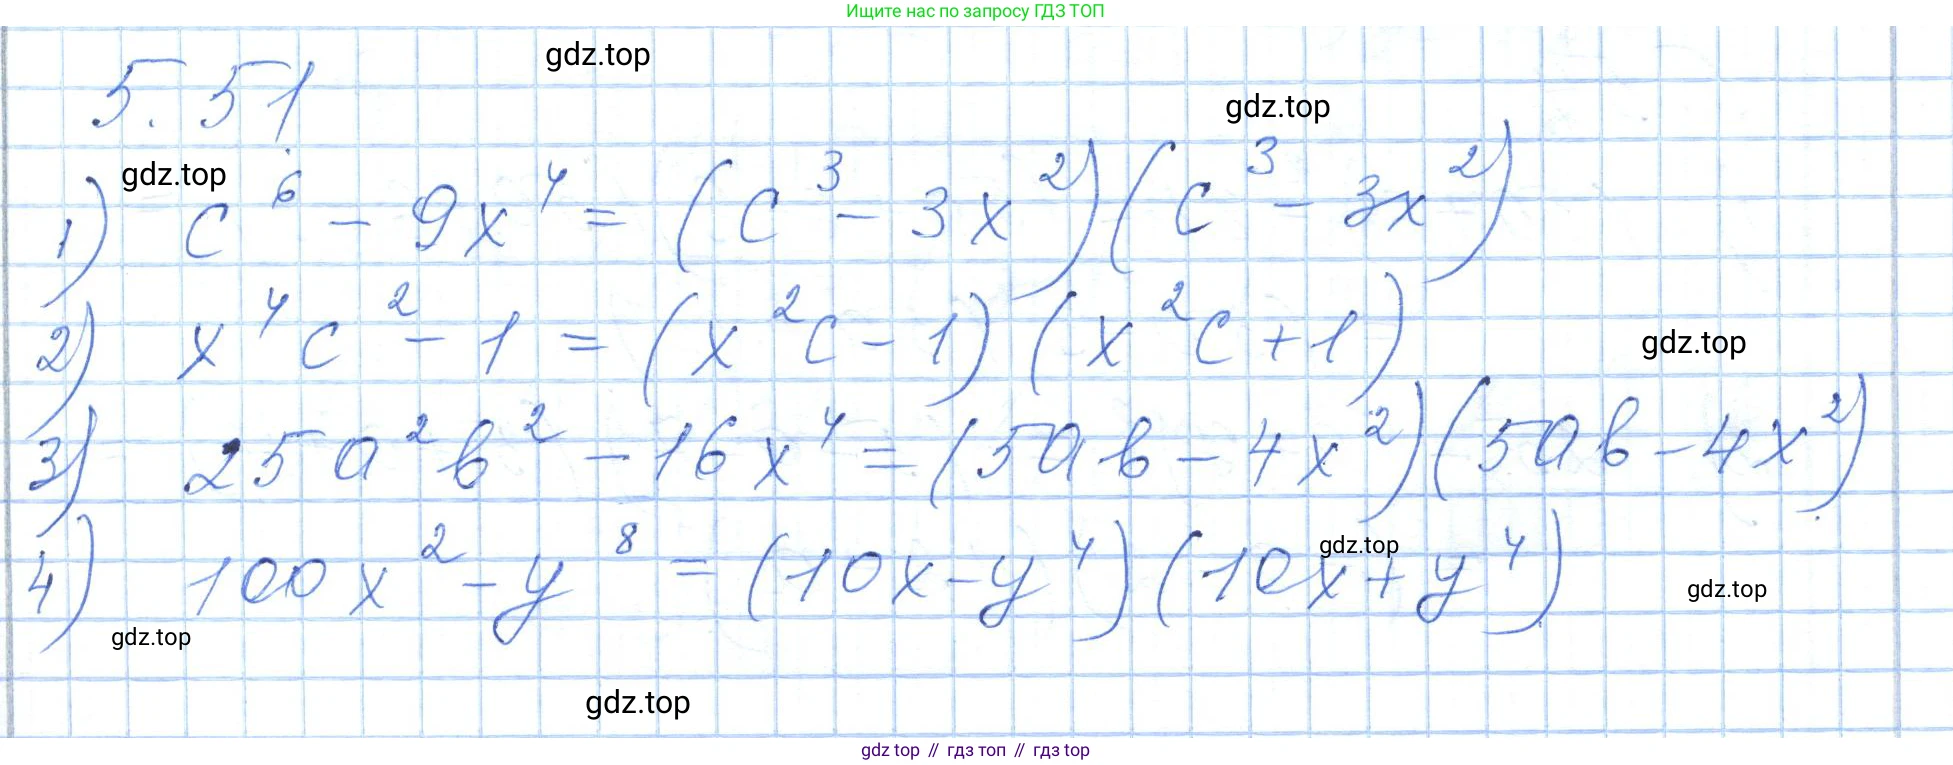 Ищите нас по запросу ГДЗ ТОП
gdz.top
5.51
gdz.top
gdz.top
1) c⁶ - 9x⁴ = (c³ - 3x²)(c³ - 3x²)
2) x⁴c² - 1 = (x²c - 1)(x²c + 1)
gdz.top
3) 25a²b² - 16x⁴ = (5ab - 4x²)(5ab - 4x²)
4) 100x² - y⁸ = (10x - y⁴)(10x + y⁴)
gdz.top
gdz.top
gdz.top
gdz.top
gdz top // гдз топ // гдз top